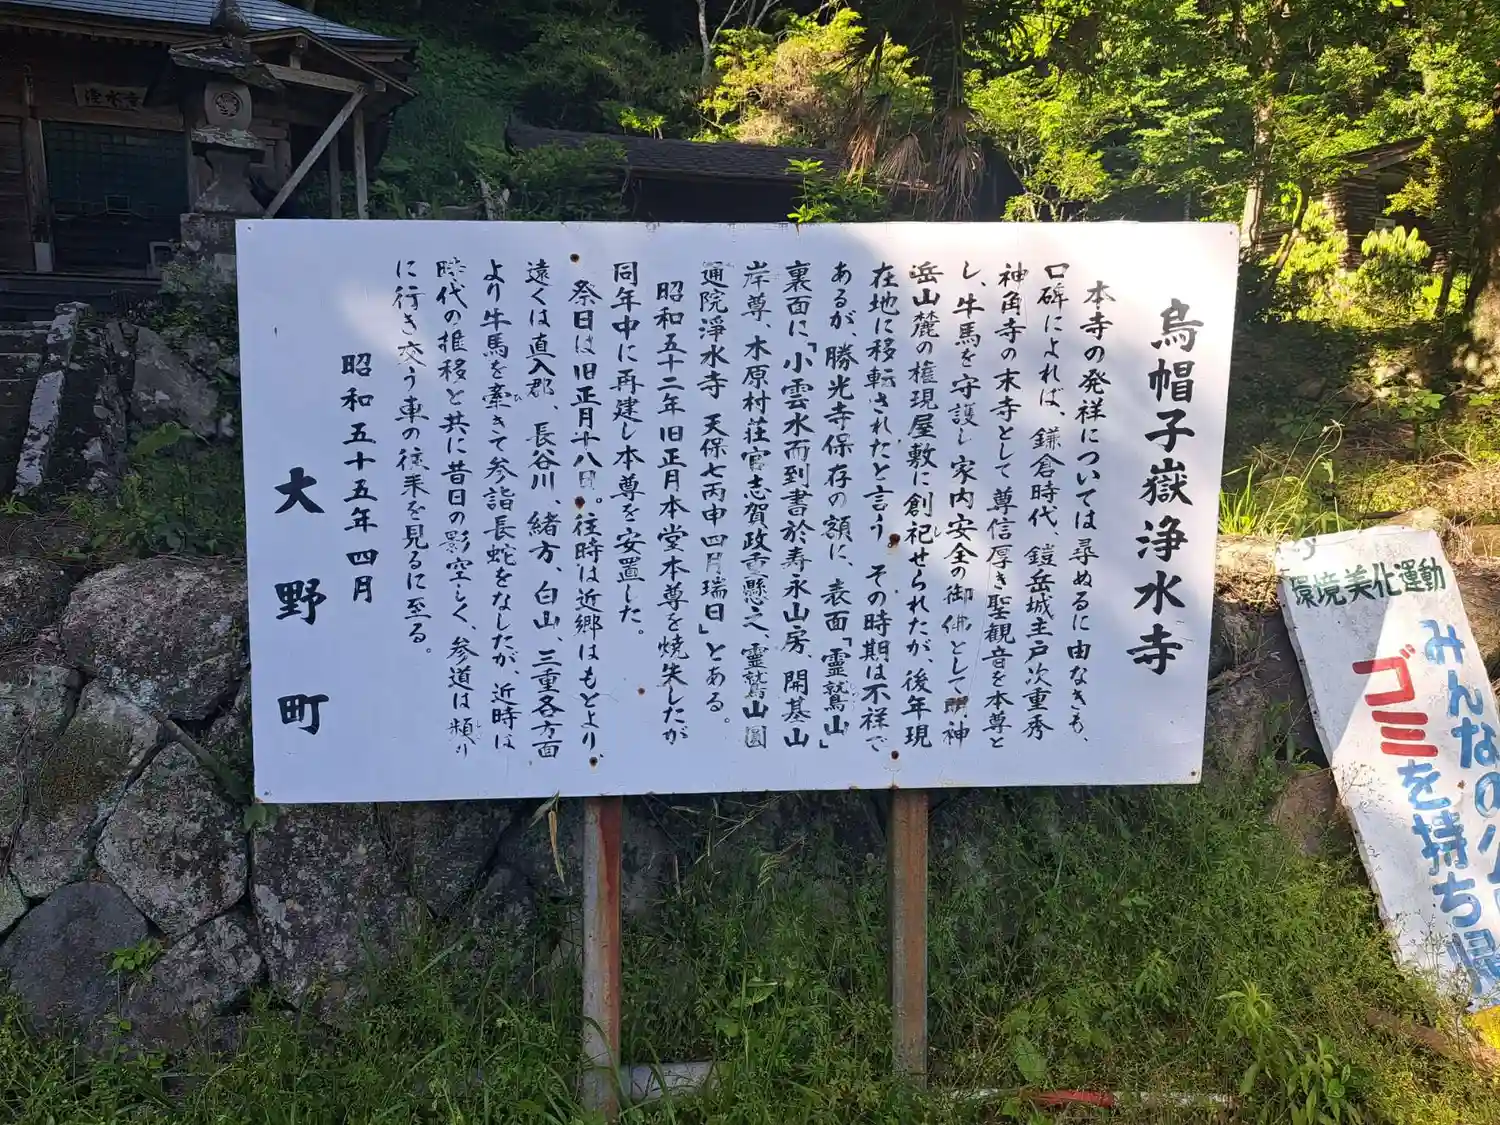 烏帽子嶽浄水寺
本寺の発祥については尋ぬるに由なきも、
口碑によれば、鎌倉時代、鎧岳城主戸次重秀
神角寺の末寺として尊信厚き聖観音を本尊と
し、牛馬を守護し家内安全の御佛として明神
岳山麓の権現屋敷に創祀せられたが、後年現
在地に移転されたと言う。その時期は不祥で
あるが、勝光寺保存の額に、表面「霊鷲山」
裏面に「小雲水而到書於寿永山房、開基山
岸尊、木原村荘官志賀政重懸之、霊鷲山圓
通院淨水寺 天保七丙申四月瑞日」とある。
昭和五十二年旧正月本堂本尊を焼失したが
同年中に再建し本尊を安置した。
祭日は旧正月十八日。往時は近郷はもとより、
遠くは直入郡、長谷川、緒方、白山、三重各方面
より牛馬を牽きて参詣長蛇をなしたが、近時は
時代の推移と共に昔日の影空しく、参道は頻り
に行き交う車の往来を見るに至る。
昭和五十五年四月
大野町
環境美化運動
みんなの
ゴミを持ち帰